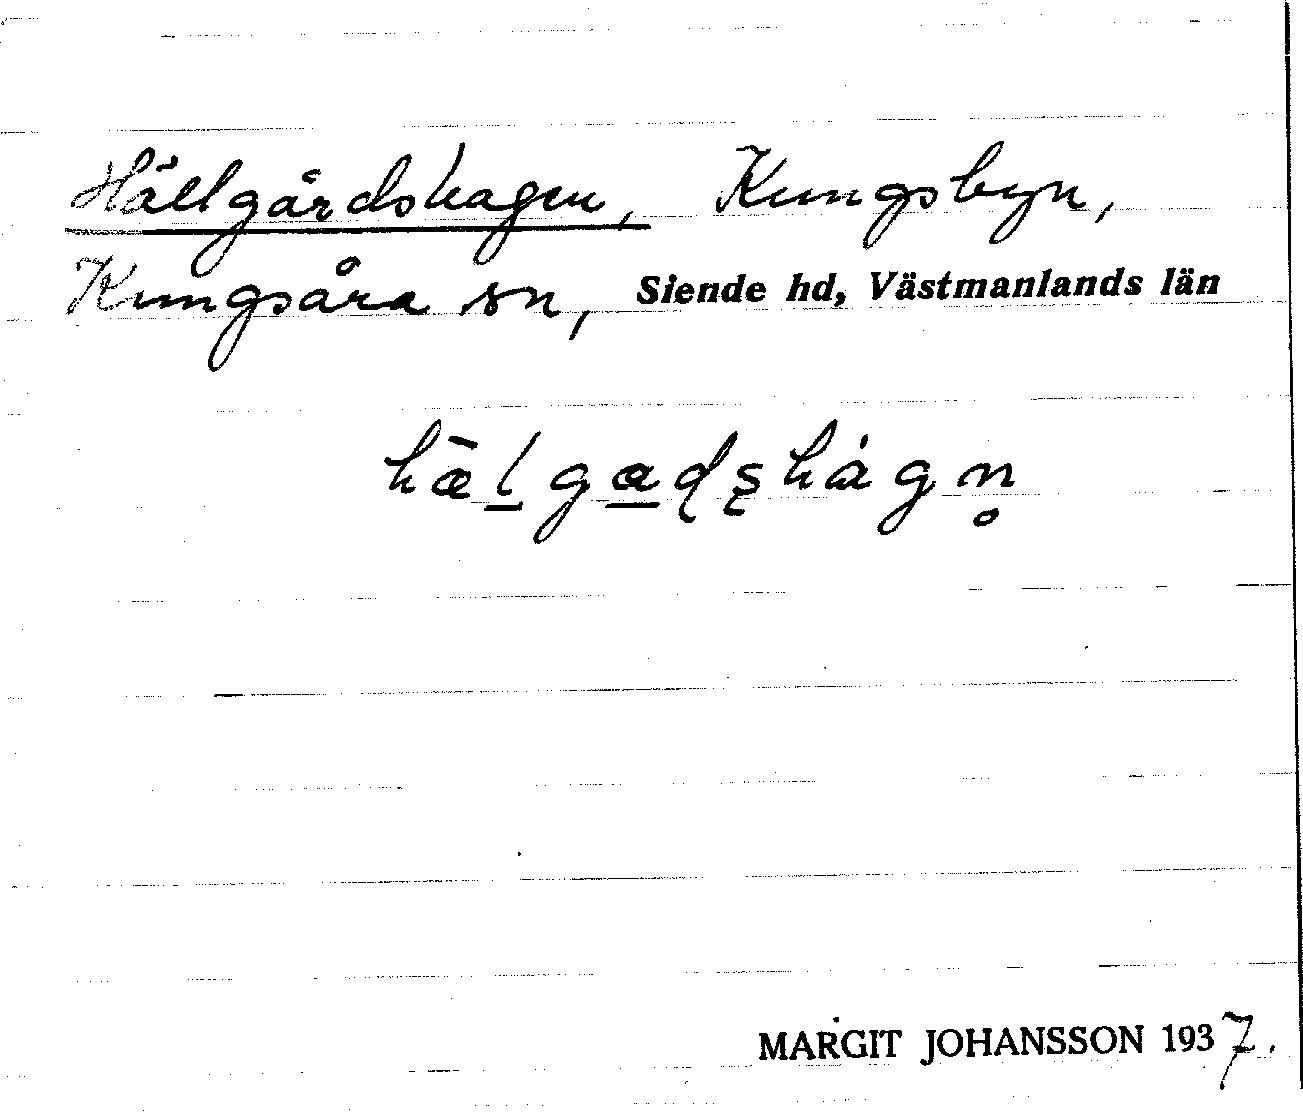 Hällgårdshagen, Kungsbyn,
Kungsåra sn, Siende hd, Västmanlands län
hæ̀lgadʂhágn̥
MARGIT JOHANSSON 1937.